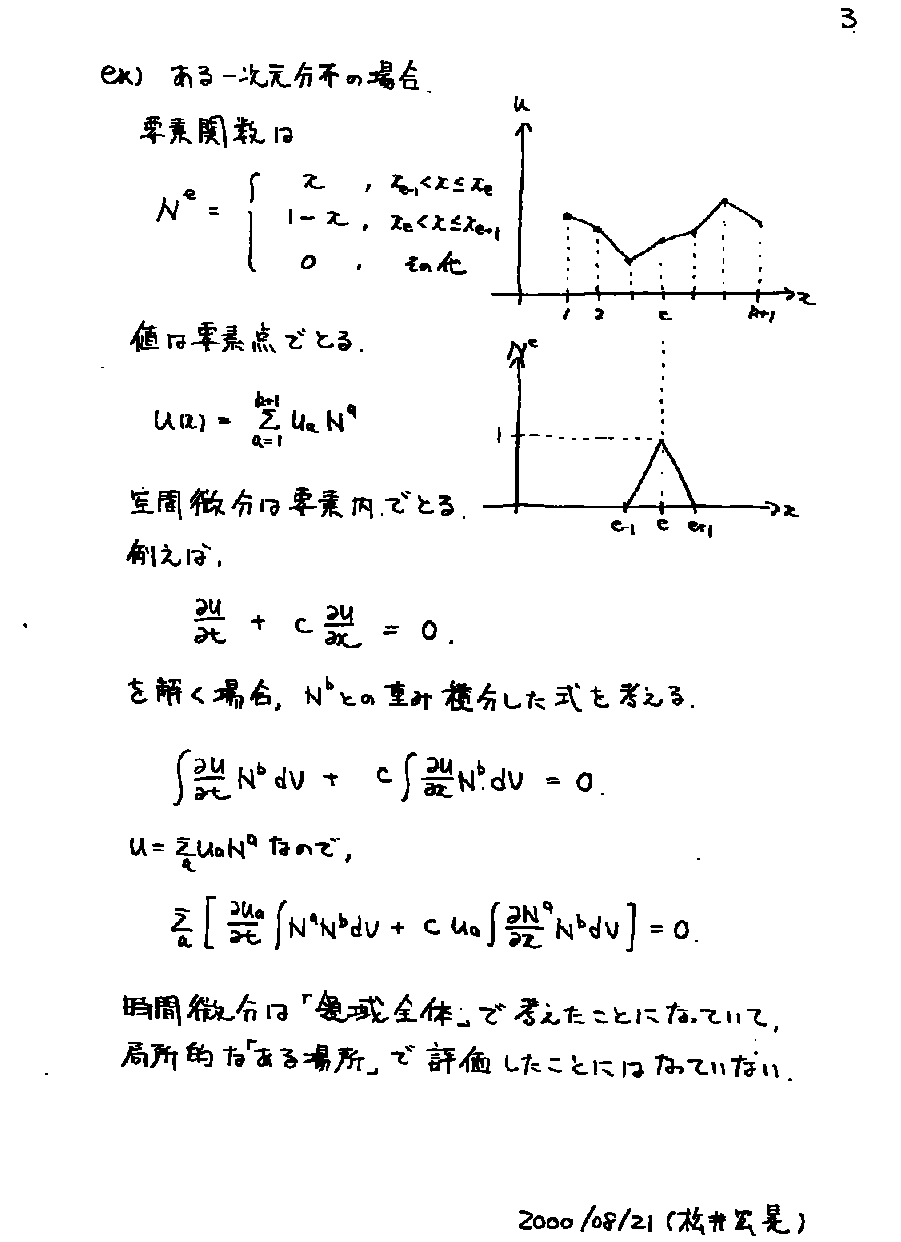 3
ex) ある一次元分布の場合.
要素関数は
N^e = { x , x_{e-1}<x≦x_e
1-x , x_e<x≦x_{e+1}
0 , その他
u
x
1 2 e k+1
値は要素点でとる.
N^e
1
x
e-1 e e+1
u(x) = Σ_{a=1}^{k+1} u_a N^a
空間微分は要素内でとる.
例えば,
∂u/∂t + c ∂u/∂x = 0.
を解く場合, N^b との重み積分した式を考える.
∫ ∂u/∂t N^b dV + c ∫ ∂u/∂x N^b dV = 0.
u = Σ_a u_a N^a なので,
Σ_a [ ∂u_a/∂t ∫ N^a N^b dV + c u_a ∫ ∂N^a/∂x N^b dV ] = 0.
時間微分は「領域全体」で考えたことになっていて,
局所的な「ある場所」で評価したことにはなっていない.
2000/08/21 (松井宏晃)